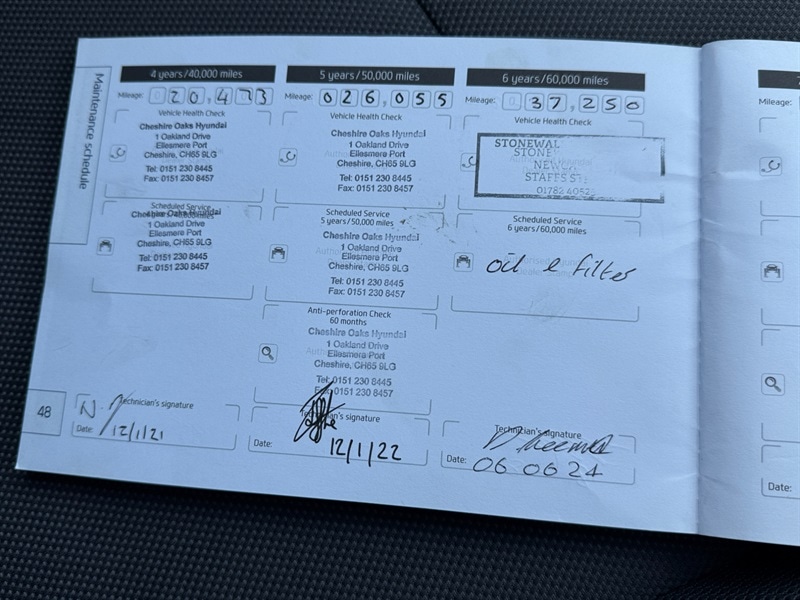 Maintenance schedule
4 years/40,000 miles
Mileage: 020,473
Vehicle Health Check
Cheshire Oaks Hyundai
1 Oakland Drive
Ellesmere Port
Cheshire, CH65 9LG
Tel: 0151 230 8445
Fax: 0151 230 8457
Scheduled Service
Cheshire Oaks Hyundai
1 Oakland Drive
Ellesmere Port
Cheshire, CH65 9LG
Tel: 0151 230 8445
Fax: 0151 230 8457
Technician's signature
Date: 12/1/21
48
5 years/50,000 miles
Mileage: 026,055
Vehicle Health Check
Cheshire Oaks Hyundai
1 Oakland Drive
Ellesmere Port
Cheshire, CH65 9LG
Tel: 0151 230 8445
Fax: 0151 230 8457
Scheduled Service
5 years/50,000 miles
Cheshire Oaks Hyundai
1 Oakland Drive
Ellesmere Port
Cheshire, CH65 9LG
Tel: 0151 230 8445
Fax: 0151 230 8457
Anti-perforation Check
60 months
Cheshire Oaks Hyundai
1 Oakland Drive
Ellesmere Port
Cheshire, CH65 9LG
Tel: 0151 230 8445
Fax: 0151 230 8457
Technician's signature
Date: 12/1/22
6 years/60,000 miles
Mileage: 37,250
Vehicle Health Check
STONEWAL
STONE
NEWCA
STAFFS ST
01782 4052
Scheduled Service
6 years/60,000 miles
oil e filter
Technician's signature
Date: 06 06 24
Mileage:
Date: